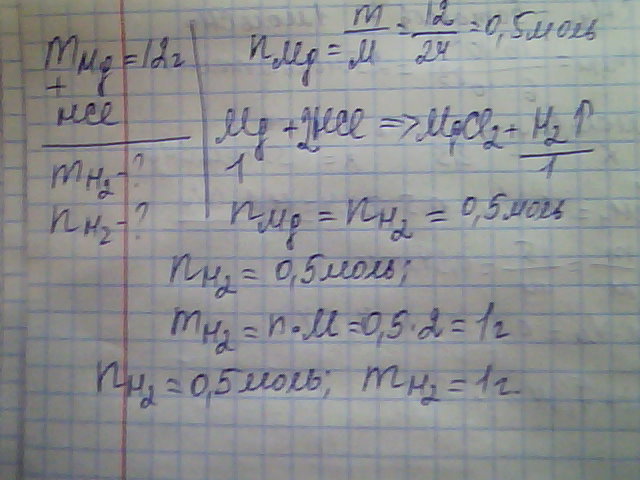 mMg = 12г
+
HCl
mH₂ - ?
nH₂ - ?
nMg = m/M = 12/24 = 0,5моль
Mg + 2HCl => MgCl₂ + H₂↑
1 1
nMg = nH₂ = 0,5моль
nH₂ = 0,5моль;
mH₂ = n·M = 0,5·2 = 1г
nH₂ = 0,5моль; mH₂ = 1г